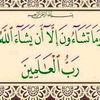 وَمَا تَشَاءُونَ إِلَّا أَن يَشَاءَ اللَّهُ
رَبُّ الْعَالَمِينَ